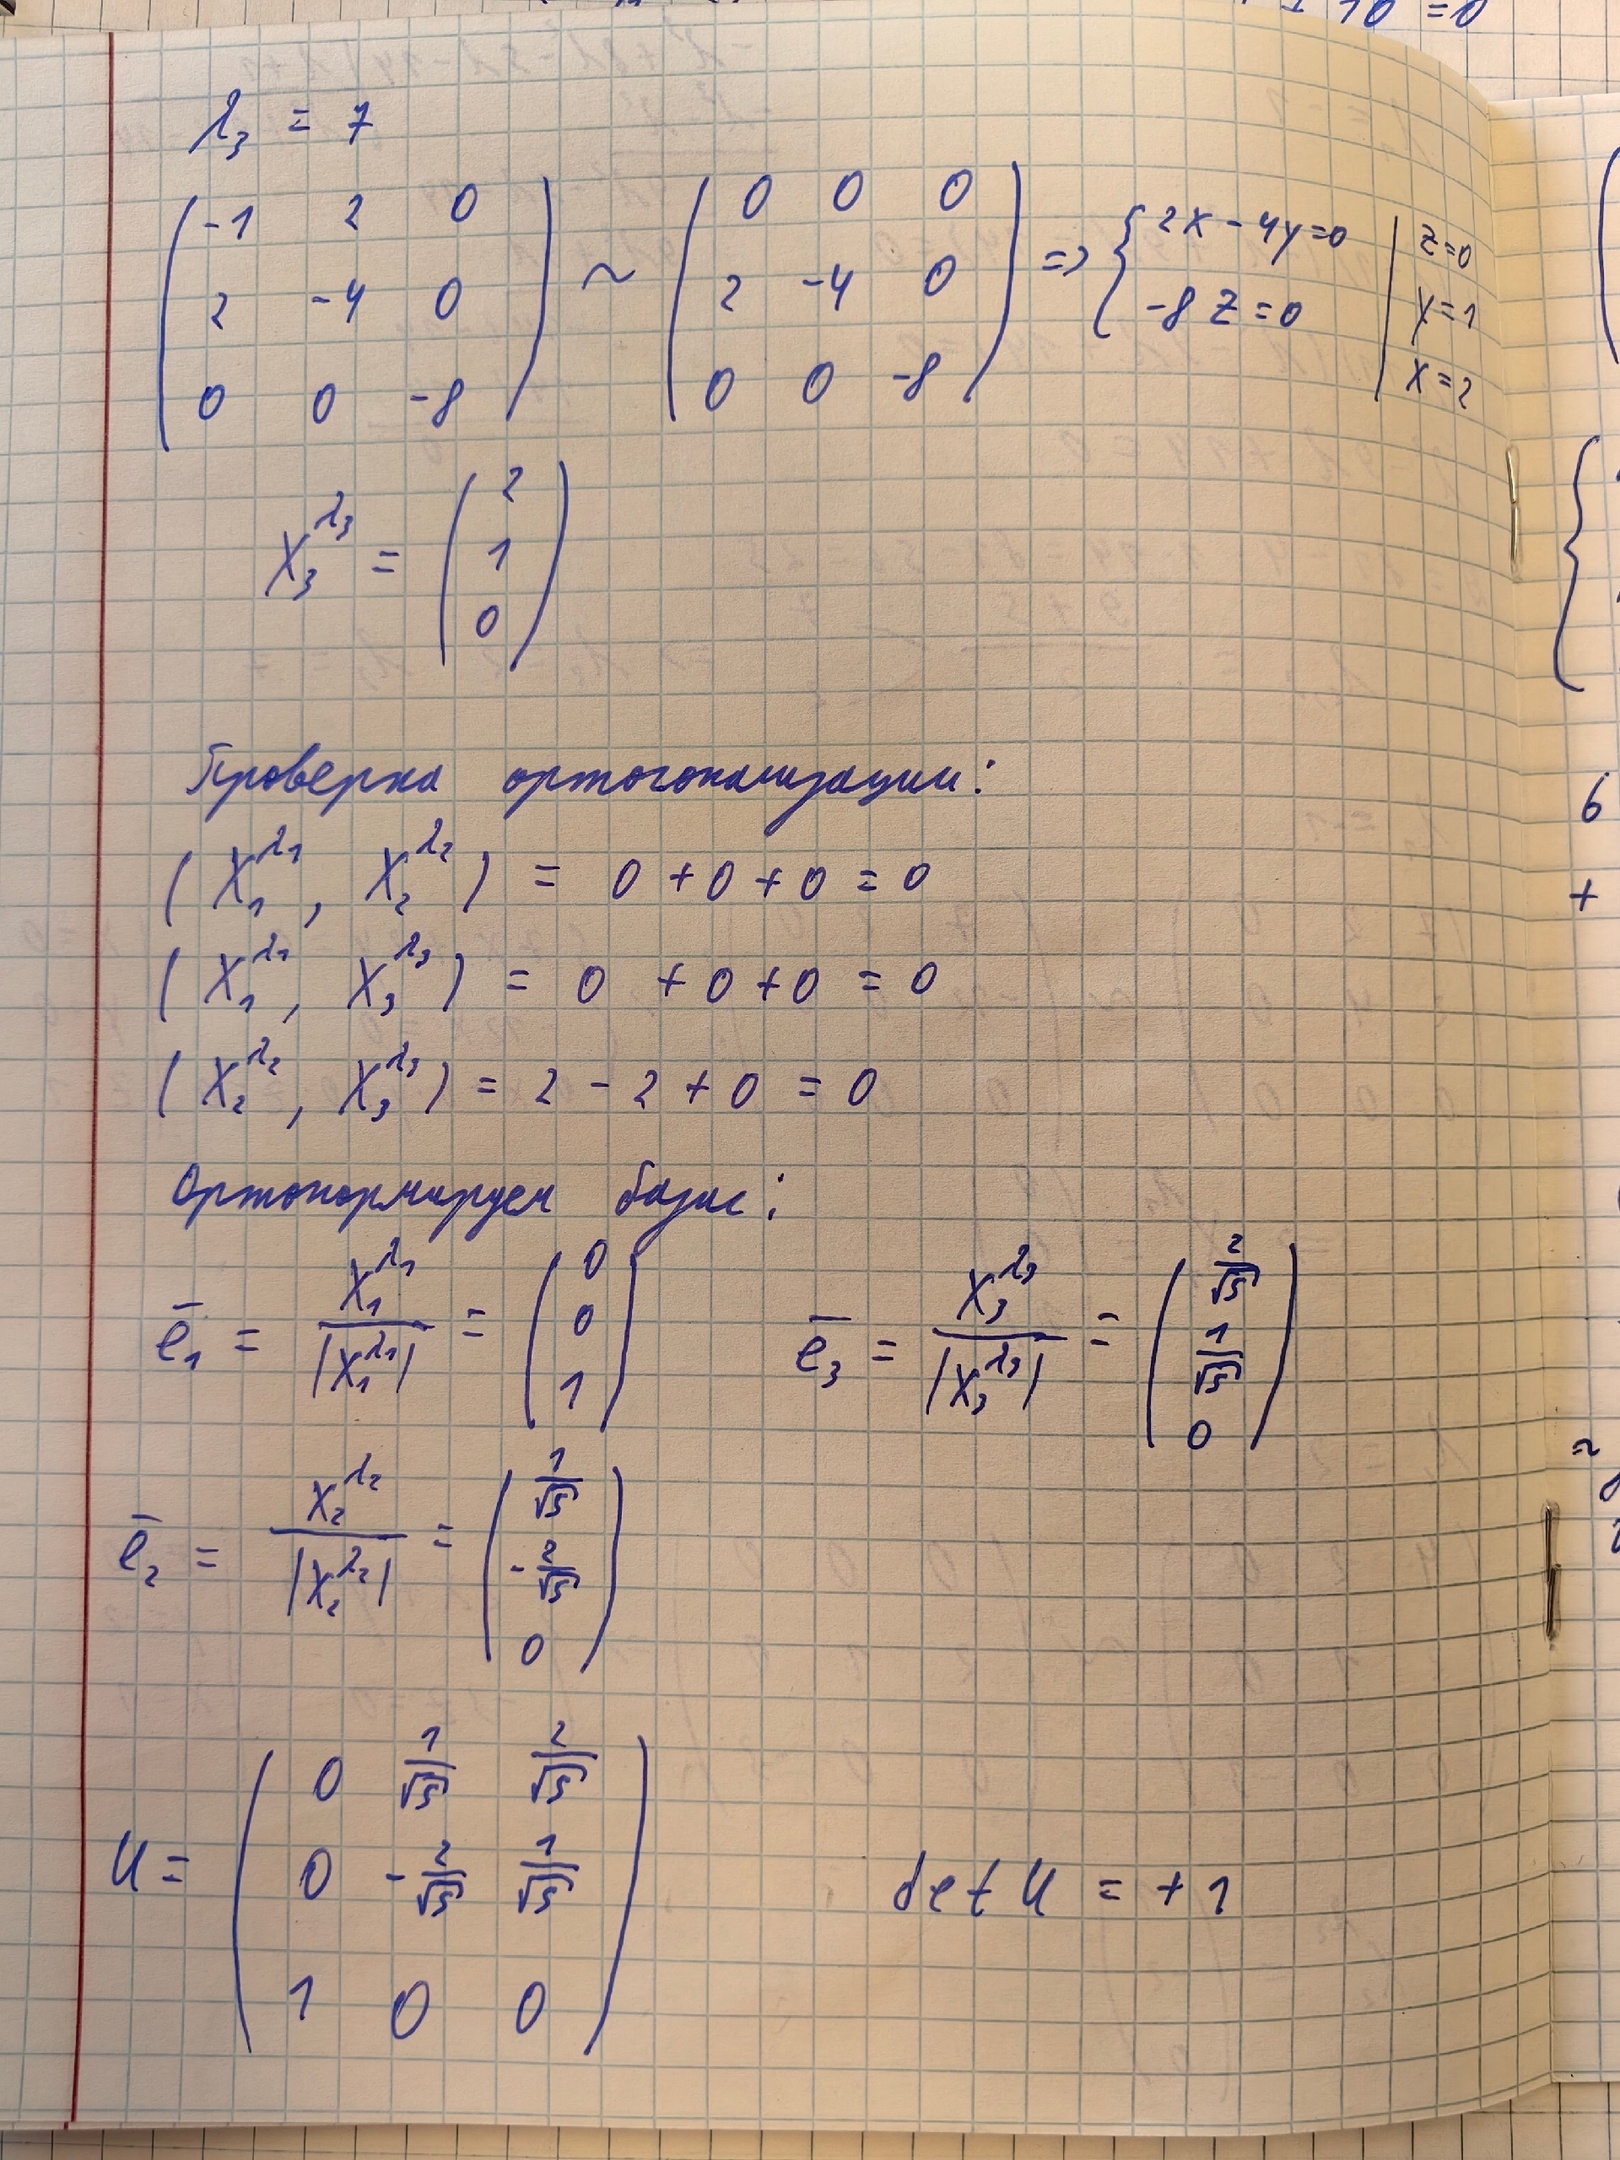 ± 10 = 0
λ₃ = 7
( -1 2 0 ) ~ ( 0 0 0 ) => { 2x - 4y = 0 | z = 0
( 2 -4 0 ) ( 2 -4 0 ) { -8z = 0 | y = 1
( 0 0 -8 ) ( 0 0 -8 ) | x = 2
X₃^λ₃ = ( 2
1
0 )
Проверка ортогонализации:
( X₁^λ₁ , X₂^λ₂ ) = 0 + 0 + 0 = 0
( X₁^λ₁ , X₃^λ₃ ) = 0 + 0 + 0 = 0
( X₂^λ₂ , X₃^λ₃ ) = 2 - 2 + 0 = 0
Ортонормируем базис:
ē₁ = X₁^λ₁ / |X₁^λ₁| = ( 0
0
1 )
ē₃ = X₃^λ₃ / |X₃^λ₃| = ( 2/√5
1/√5
0 )
ē₂ = X₂^λ₂ / |X₂^λ₂| = ( 1/√5
-2/√5
0 )
U = ( 0 1/√5 2/√5
0 -2/√5 1/√5
1 0 0 )
det U = + 1
6
+